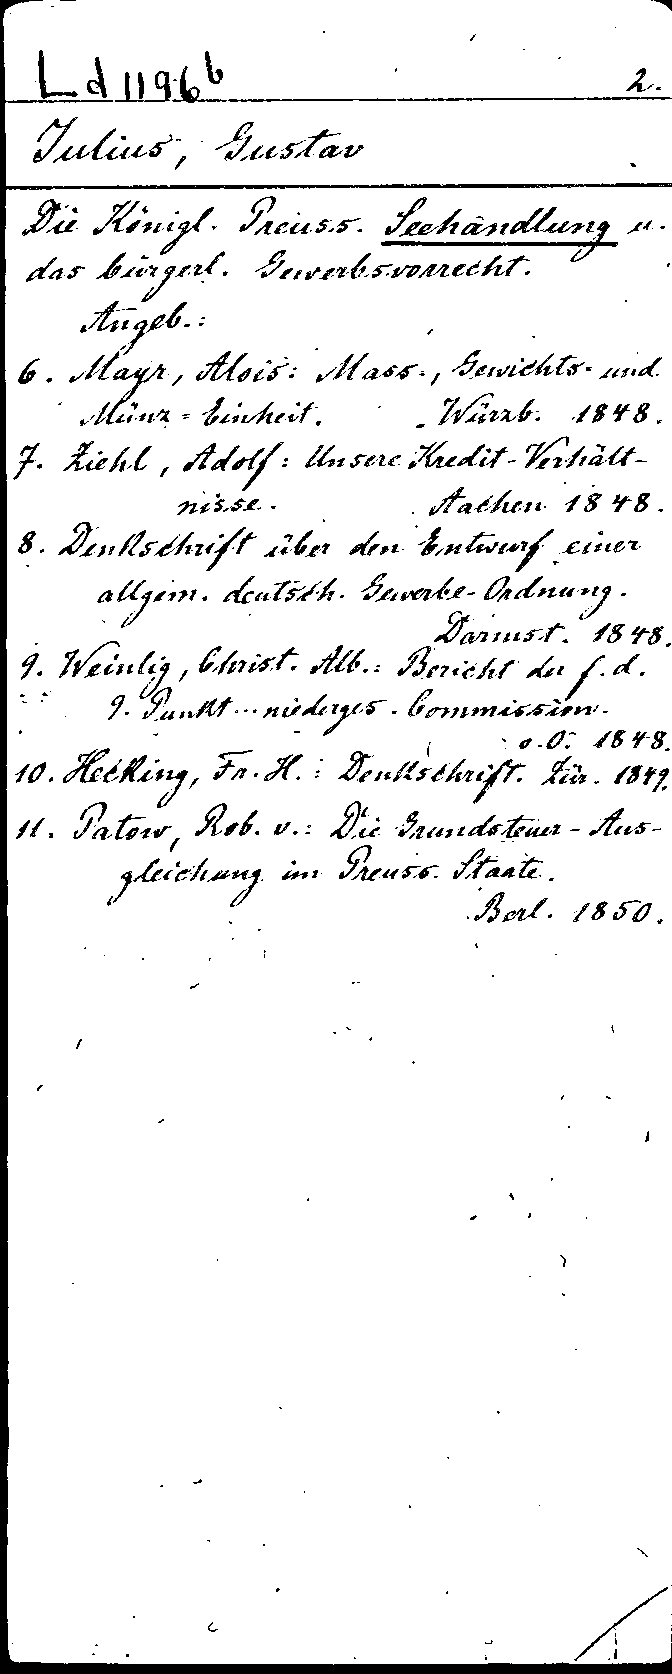 Ld 1196b 2.
Julius, Gustav
Die Königl. Preuss. Seehandlung u.
das bürgerl. Gewerbsvorrecht.
Angeb.:
6. Mayr, Alois: Mass-, Gewichts- und
Münz-Einheit. Würzb. 1848.
7. Ziehl, Adolf: Unsere Kredit-Verhält-
nisse. Aachen 1848.
8. Denkschrift über den Entwurf einer
allgem. deutsch. Gewerbe-Ordnung.
Darmst. 1848.
9. Weinlig, Christ. Alb.: Bericht der f. d.
9. Punkt .. niederges. Commission.
o.O. 1848.
10. Hecking, Fr. H.: Denkschrift. Zür. 1849.
11. Patow, Rob. v.: Die Grundsteuer-Aus-
gleichung im Preuss. Staate.
Berl. 1850.